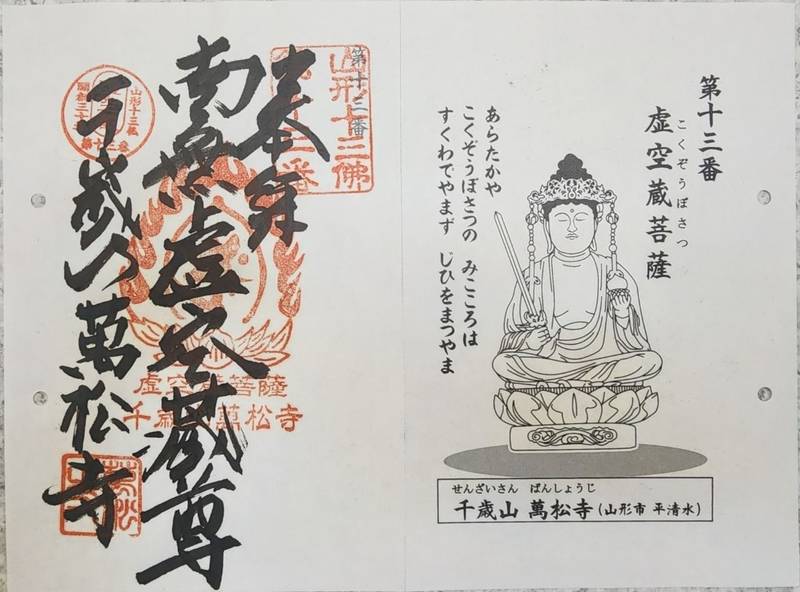 第十三番
こくぞうぼさつ
虚空蔵菩薩
あらたかや
こくぞうぼさつの　みこころは
すくわでやまず　じひをまつやま
せんざいさん　ばんしょうじ
千歳山 萬松寺(山形市 平清水)
山形十三佛
第十三番
奉拜
南無虚空蔵尊
千歳山萬松寺
山形十三佛
第十三番
虚空蔵菩薩
千歳山萬松寺